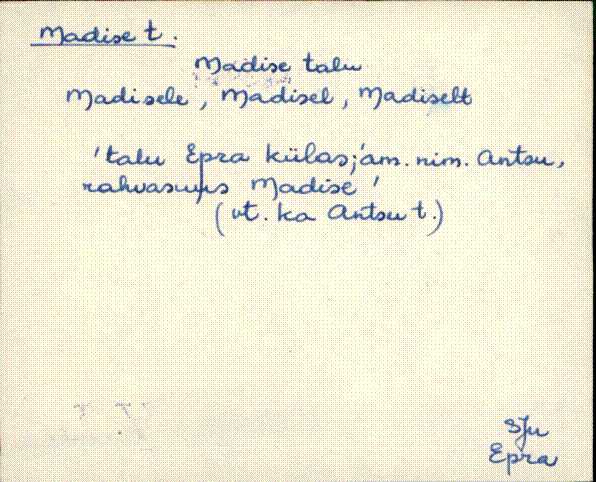 Madise t.
Madise talu
Madisele, Madisel, Madiselt
'talu Epra külas; am. nim. Antsu,
rahvasuus Madise'
(vt. ka Antsu t.)
SJu
Epra